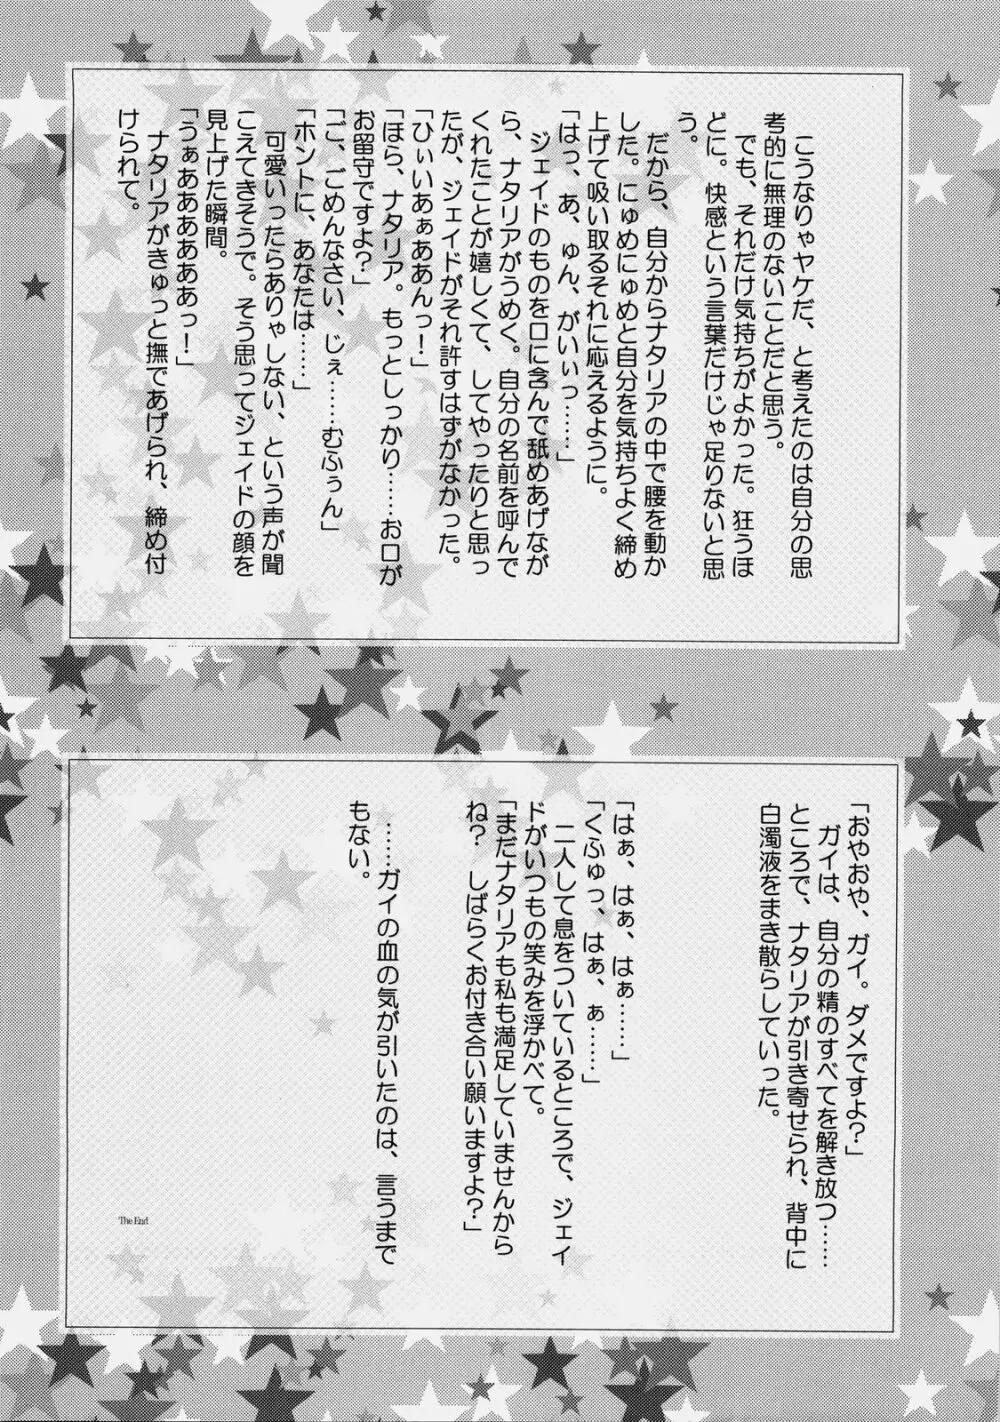 こうなりゃヤケだ、と考えたのは自分の思
考的に無理のないことだと思う。
　でも、それだけ気持ちがよかった。狂うほ
どに。快感という言葉だけじゃ足りないと思
う。
　だから、自分からナタリアの中で腰を動か
した。にゅめにゅめと自分を気持ちよく締め
上げて吸い取るそれに応えるように。
「はっ、あ、ゅん、がいいっ……」
　ジェイドのものを口に含んで舐めあげなが
ら、ナタリアがうめく。自分の名前を呼んで
くれたことが嬉しくて、してやったりと思っ
たが、ジェイドがそれ許すはずがなかった。
「ひぃいあぁああんっ！」
「ほら、ナタリア。もっとしっかり……お口が
お留守ですよ？」
「ご、ごめんなさい、じぇ……むふぅん」
「ホントに、あなたは……」
　可愛いったらありゃしない、という声が聞
こえてきそうで。そう思ってジェイドの顔を
見上げた瞬間。
「うぁああああああっ！」
　ナタリアがきゅっと撫であげられ、締め付
けられて。
「おやおや、ガイ。ダメですよ？」
　ガイは、自分の精のすべてを解き放つ……
ところで、ナタリアが引き寄せられ、背中に
白濁液をまき散らしていった。
「はぁ、はぁ、はぁ……」
「くふゅっ、はぁ、ぁ……」
　二人して息をついているところで、ジェイ
ドがいつもの笑みを浮かべて。
「まだナタリアも私も満足していませんから
ね？　しばらくお付き合い願いますよ？」
　……ガイの血の気が引いたのは、言うまで
もない。
The End